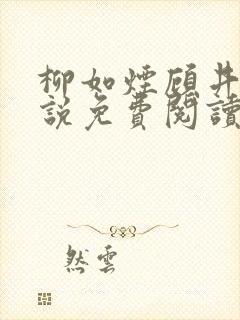 柳如煙顧井
說免費閱讀
然雲